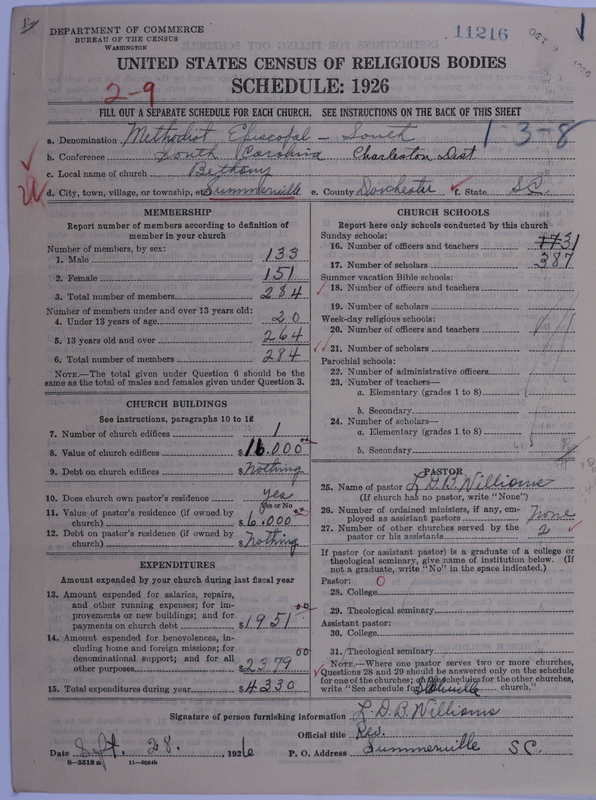 DEPARTMENT OF COMMERCE
BUREAU OF THE CENSUS
WASHINGTON
11216
UNITED STATES CENSUS OF RELIGIOUS BODIES
SCHEDULE: 1926
2-9
FILL OUT A SEPARATE SCHEDULE FOR EACH CHURCH. SEE INSTRUCTIONS ON THE BACK OF THIS SHEET
a. Denomination Methodist Episcopal - South 1-3-8
b. Conference South Carolina Charleston Dist
c. Local name of church Bethany
d. City, town, village, or township, etc Summerville e. County Dorchester f. State SC
MEMBERSHIP
Report number of members according to definition of
member in your church
Number of members, by sex:
1. Male 133
2. Female 151
3. Total number of members 284
Number of members under and over 13 years old:
4. Under 13 years of age 20
5. 13 years old and over 264
6. Total number of members 284
NOTE.—The total given under Question 6 should be the
same as the total of males and females given under Question 3.
CHURCH BUILDINGS
See instructions, paragraphs 10 to 12
7. Number of church edifices 1
8. Value of church edifices $16.000 00
9. Debt on church edifices $Nothing
10. Does church own pastor's residence yes
Yes or No
11. Value of pastor's residence (if owned by
church) $6.000 00
12. Debt on pastor's residence (if owned by
church) $Nothing
EXPENDITURES
Amount expended by your church during last fiscal year
13. Amount expended for salaries, repairs,
and other running expenses; for im-
provements or new buildings; and for
payments on church debt $1951 00
14. Amount expended for benevolences, in-
cluding home and foreign missions; for
denominational support; and for all
other purposes $2379 00
15. Total expenditures during year $4330
CHURCH SCHOOLS
Report here only schools conducted by this church
Sunday schools:
16. Number of officers and teachers 31
17. Number of scholars 387
Summer vacation Bible schools:
18. Number of officers and teachers
19. Number of scholars
Week-day religious schools:
20. Number of officers and teachers
21. Number of scholars
Parochial schools:
22. Number of administrative officers
23. Number of teachers—
a. Elementary (grades 1 to 8)
b. Secondary
24. Number of scholars—
a. Elementary (grades 1 to 8)
b. Secondary
PASTOR
25. Name of pastor L D B Williams
(If church has no pastor, write "None")
26. Number of ordained ministers, if any, em-
ployed as assistant pastors None
27. Number of other churches served by the
pastor or his assistants 2
If pastor (or assistant pastor) is a graduate of a college or
theological seminary, give name of institution below. (If
not a graduate, write "No" in the space indicated.)
Pastor: O
28. College
29. Theological seminary
Assistant pastor:
30. College
31. Theological seminary
NOTE.—Where one pastor serves two or more churches,
Questions 28 and 29 should be answered only on the schedule
for one of the churches; on the schedules for the other churches,
write "See schedule for church."
Signature of person furnishing information L. D. B. Williams
Official title Rev.
Date Sept. 28. 1926 P. O. Address Summerville SC.
8-5518a 11-9024b